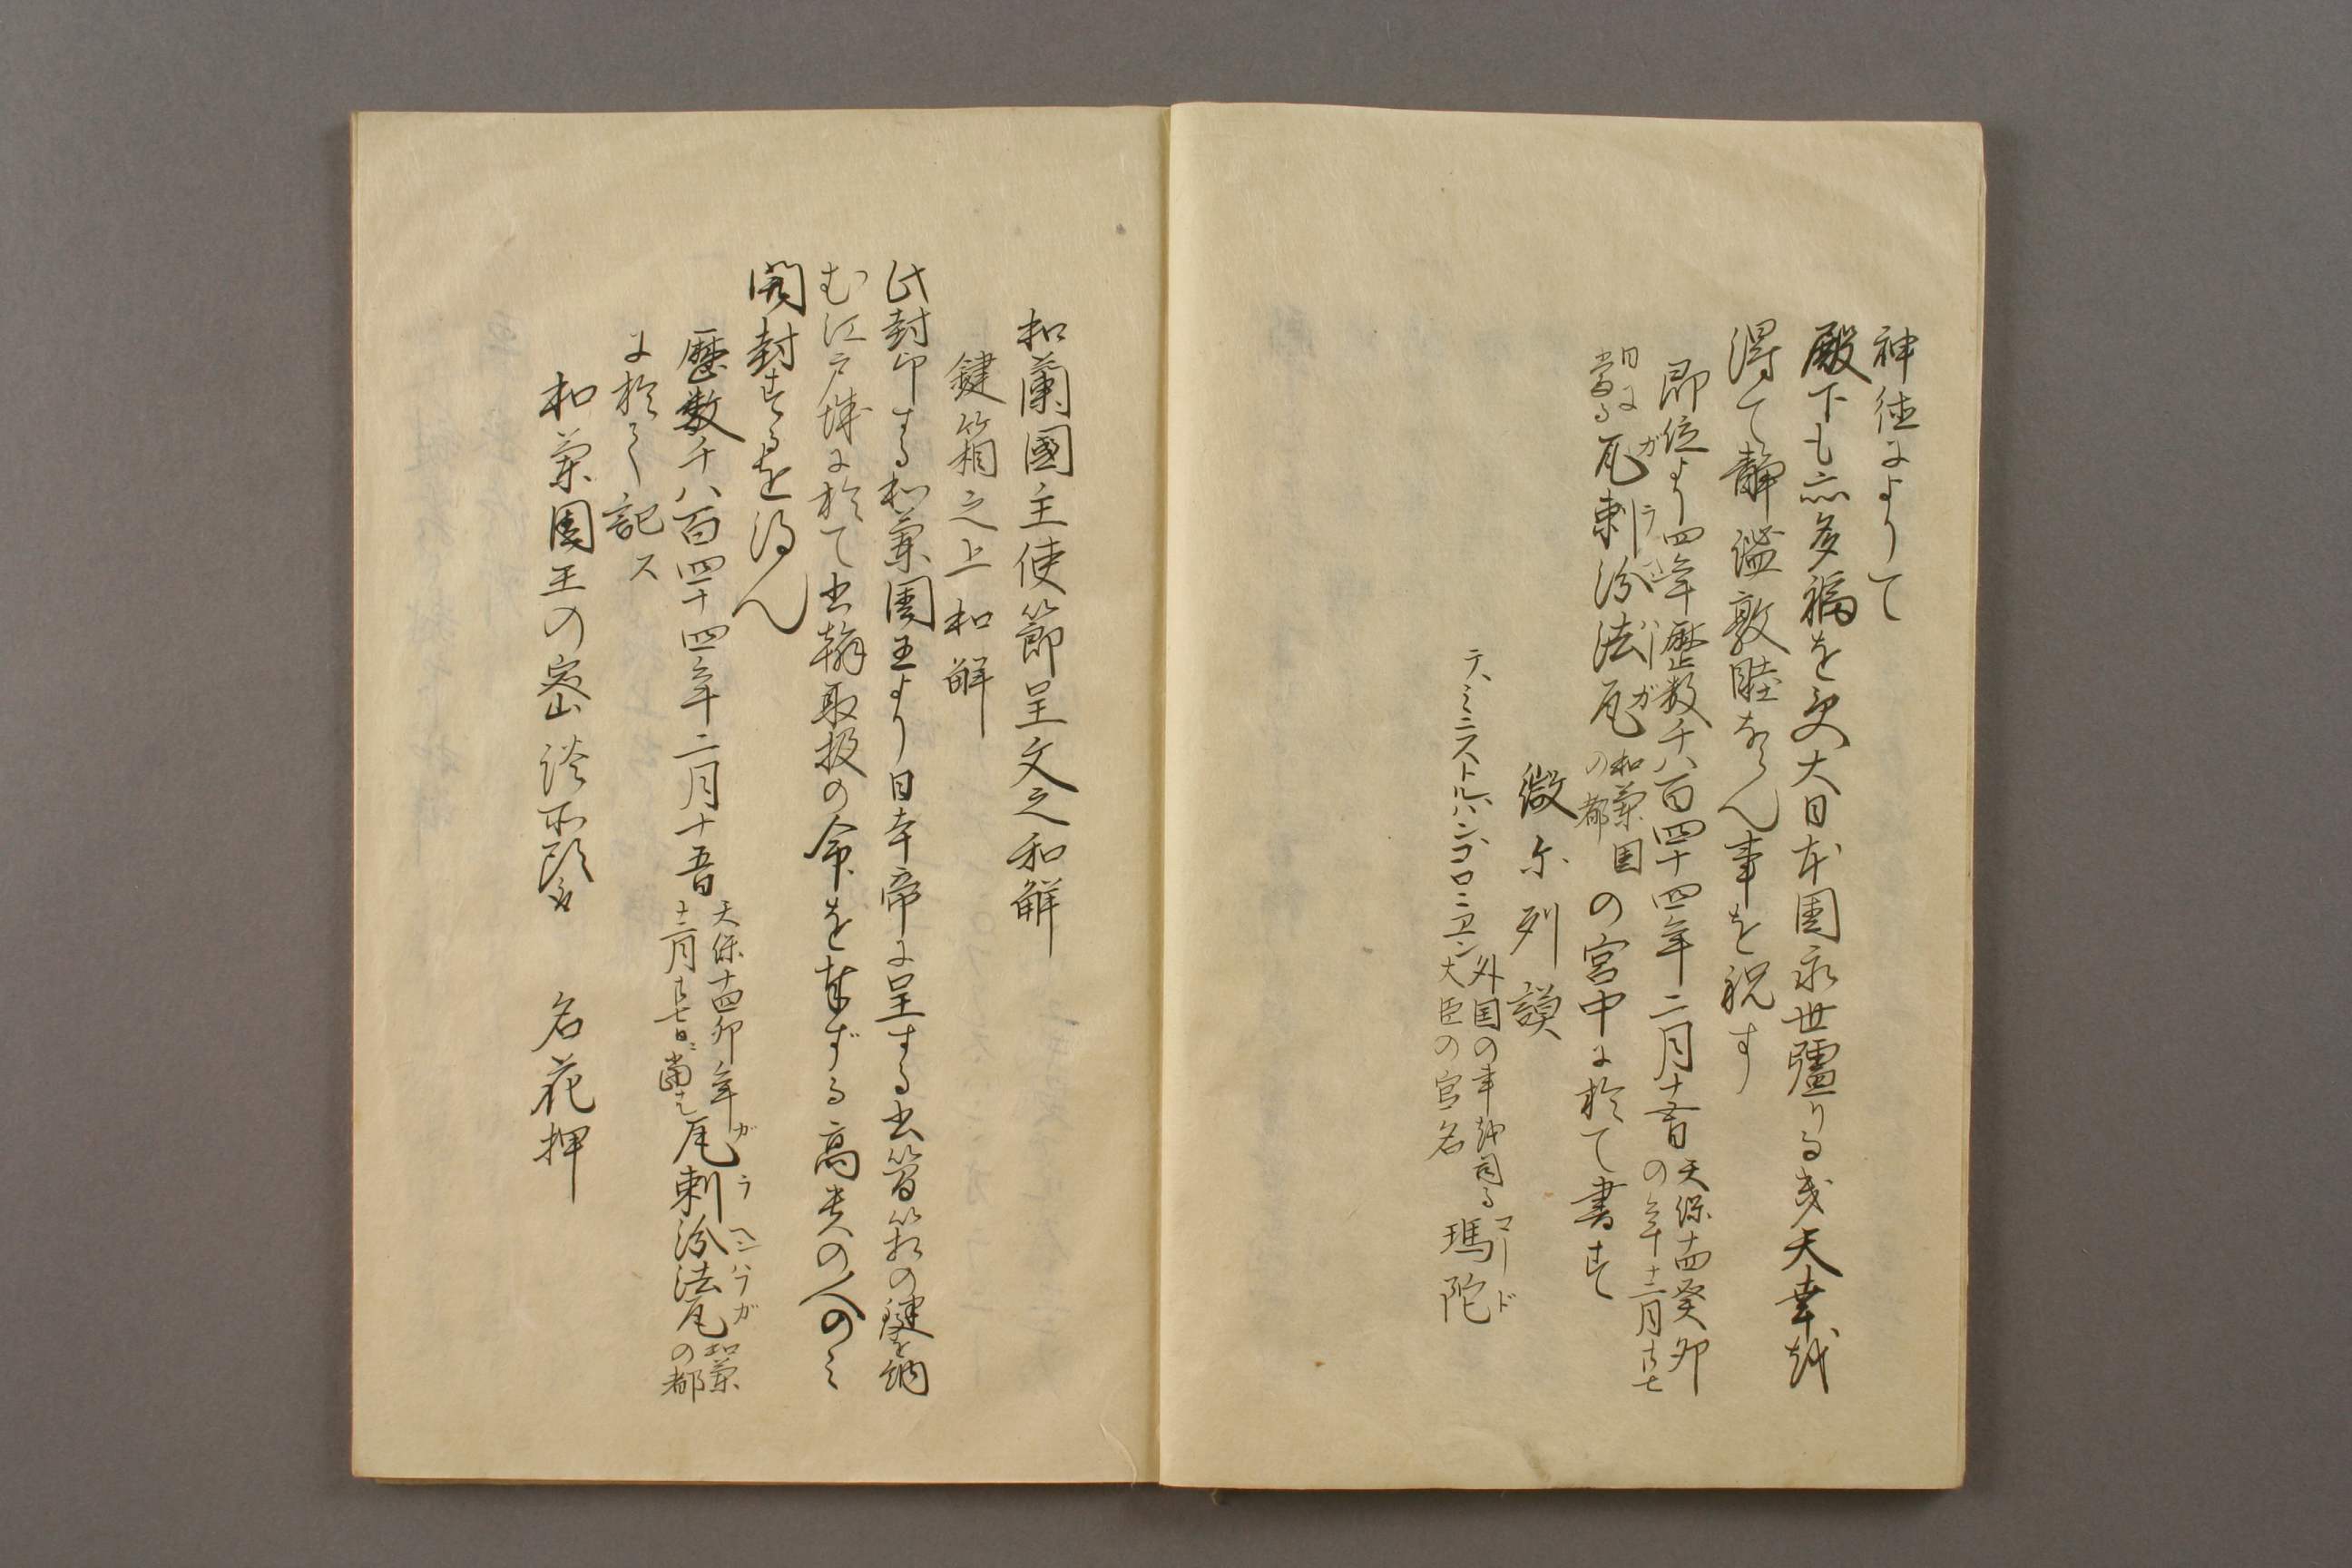 神徳によりて
殿下も亦多福を受大日本国永世疆りる き天幸越
得て静謐敦睦ならん事を祝す
即位より四年歴数千八百四十四年二月十五日 天保十四癸卯の年十二月廿七
日に当る 瓦剌汾法瓦 和蘭国の都 の宮中に於て書す
ガラ ハーガ
微尓列謨
テ、ミニストルハンコロニヱン 外国の事越司る大臣の官名 瑪陀
マード
和蘭國主使節呈文之和解
鍵箱之上和解
此封印する和蘭国王より日本帝に呈する書簡箱の鍵を納
む江戸城に於て書翰取扱の命を奉ずる高貴の人のミ
開封するを得ん
歴数千八百四十四年二月十五日 天保十四卯年十二月廿七日ニ當る 瓦剌汾法瓦 和蘭の都
ガラヘンハアガ
に於て記ス
和蘭国王の密談所頭 名花押